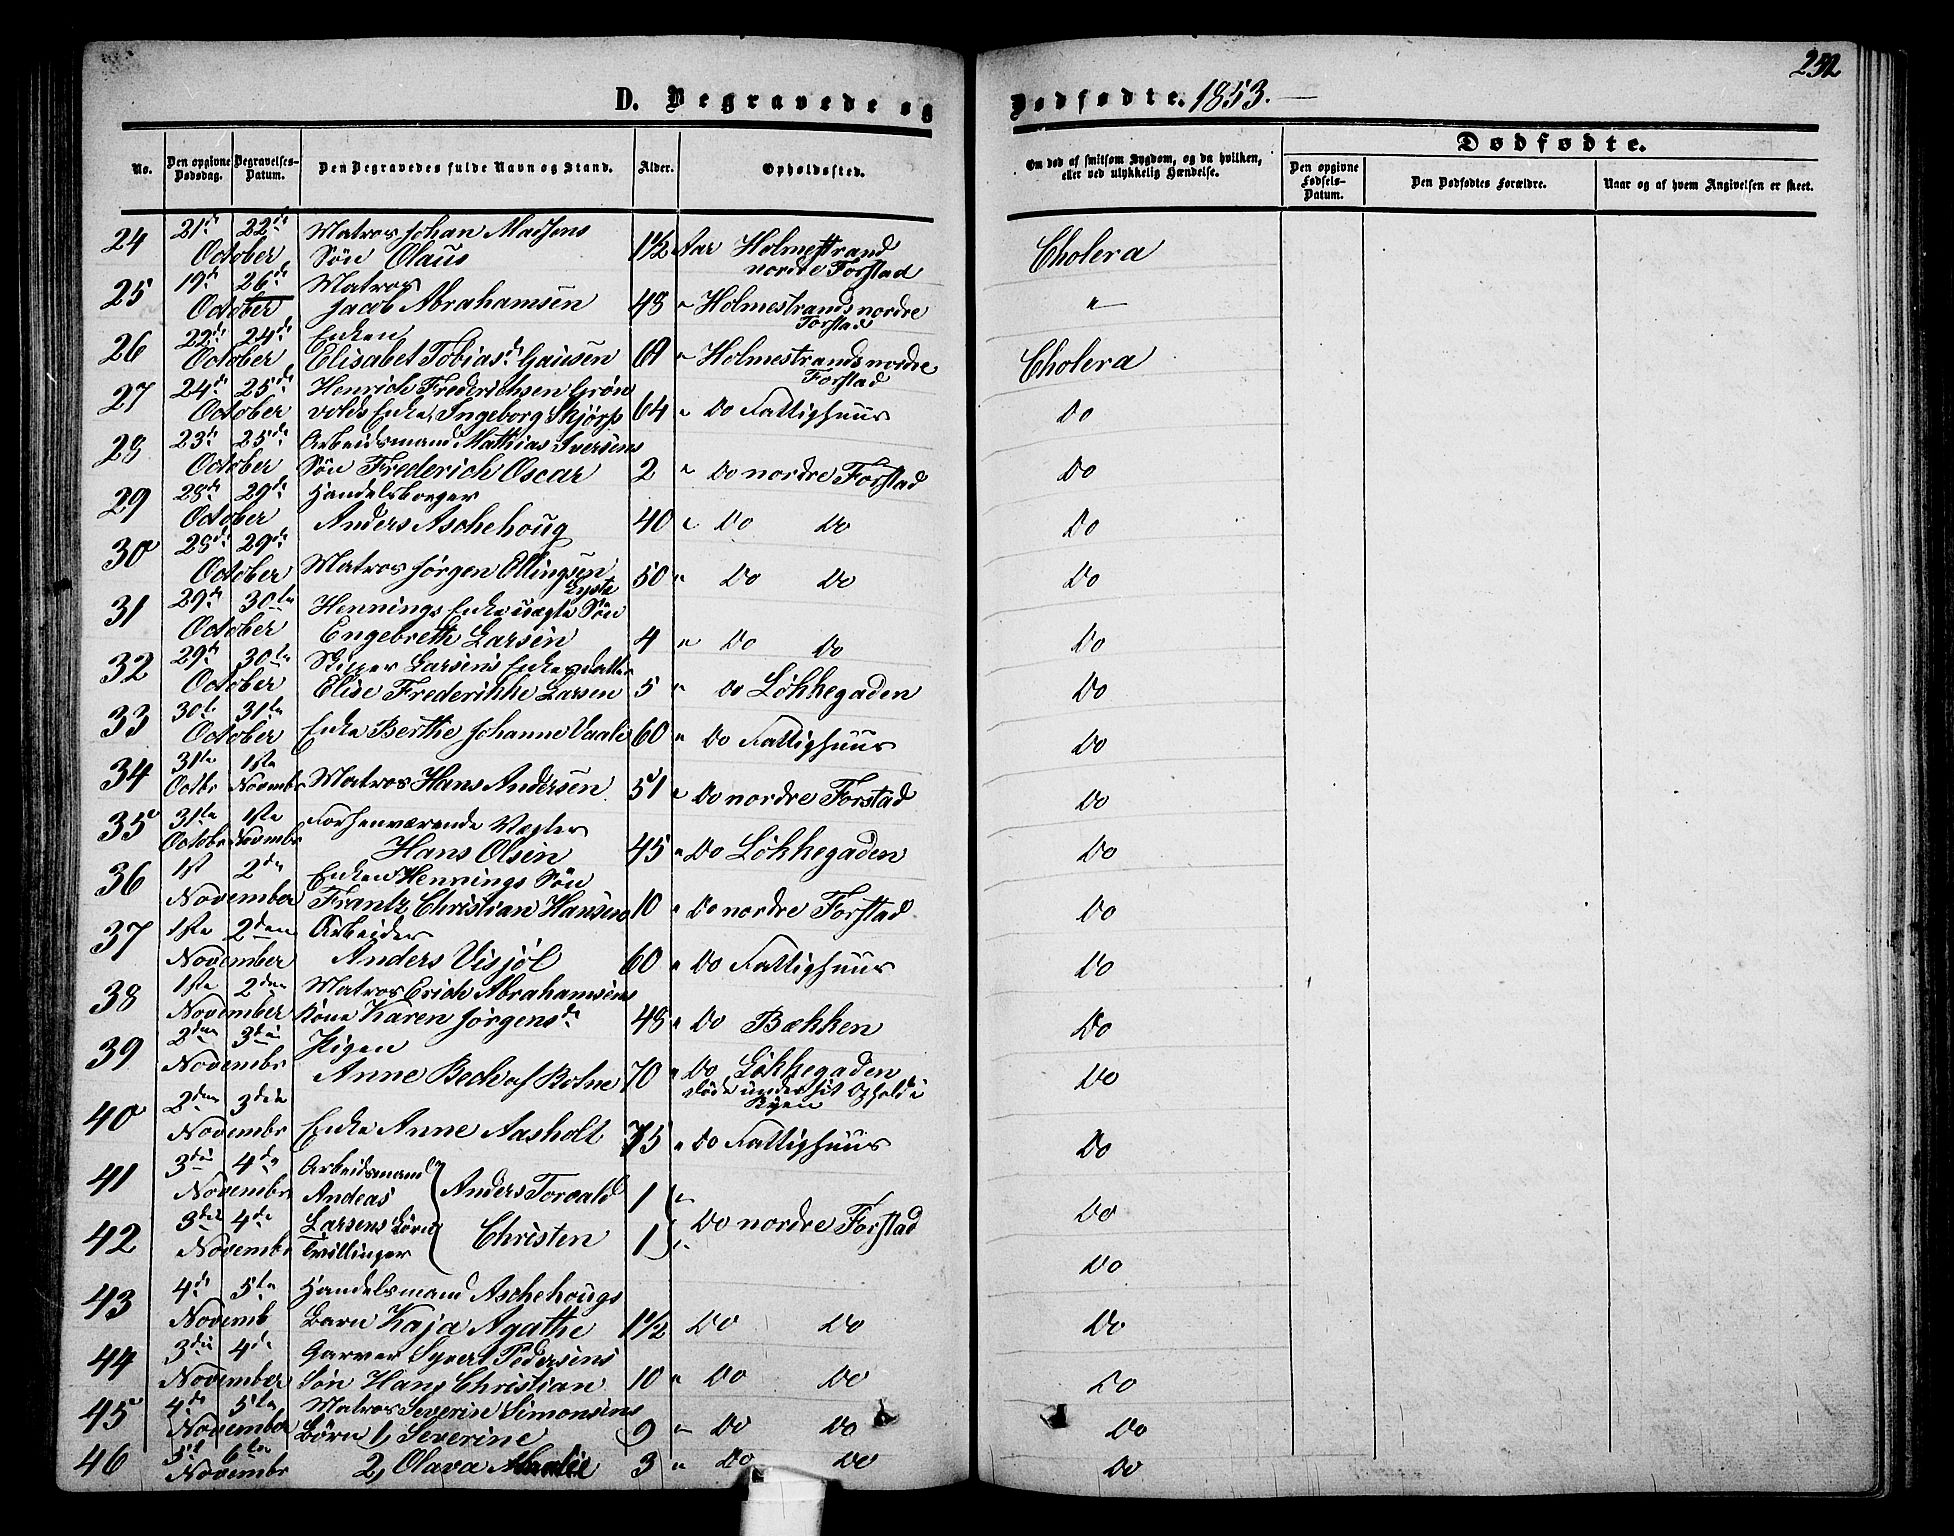 252
D. Begravede og Dødfødte. 1853.
No. Den opgivne Dødsdag. Begravelses-Datum. Den Begravedes fulde Navn og Stand. Alder. Opholdssted. Om død af smitsom Sygdom, og da hvilken, eller ved ulykkelig Hændelse.
Dødfødte.
Den opgivne Fødsels-Datum. Den Dødfødtes Forældre. Naar og af hvem Angivelsen er skeet.
24 21de 22de Matros Johan Madsens
October Søn Olaus 1 1/2 Aar Holmestrand Cholera
nordre Forstad
25 19de 26de Matros
October Jacob Abrahamsen 48 " Holmestrands nordre "
Forstad
26 22de 24de Enken
October Elisabet Tobiasd. Gausen 69 " Holmestrands nordre Cholera
Forstad
27 24de 25de Henrich Frederichsen Grøn
October volds Enke, Ingeborg 64 " Do Fattighuus Do
28 23de 25de Arbeidsmand Mathias Iversens
October Søn Frederich Oscar 2 " Do nordre Forstad Do
29 28de 29de Handelsborger
October Anders Aschehoug 40 " Do Do Do
30 28de 29de
October Matros Jørgen Ellingsen 50 " Do Do Do
31 29de 30te Hennings Enkes uægte Søn
October Engebreth Larsen 4 " Do Do Do
32 29de 30te Skipper Larsens Enkes datter
October Elise Frederikke Larsen 5 " Do Løkkegaden Do
33 30te 31te
October Enke Berthe Johanne Vaale 60 " Do Fattighuus Do
34 31te 1ste
Octbr Novembr Matros Hans Andersen 51 " Do nordre Forstad Do
35 31te 1ste Forhenværende Vægter
Octobr Novembr Hans Olsen 45 " Do Løkkegaden Do
36 1st 2de Enken Hennings Søn
November Frantz Christian Hansen 10 " Do nordre Forstad Do
37 1ste 2den Arbeider
November Anders Visjøl 60 " Do Fattighuus Do
38 1ste 2den Matros Erich Abrahamsens
November Kone Karen Jørgensd. 48 " Do Bækken Do
39 2den 3die Pigen
Novembr Anne Bech af Botne 70 " Do Løkkegaden Do
døde under sit Ophold i
Byen
40 2den 3die
Novembr Enke Anne Aasholt 75 " Do Fattighuus Do
41 3die 4de Arbeidsmand
Novembr Andeas Anders Torvald 1 " Do
42 3die 4de Larsens Børn Do nordre Forstad
Novembr Tvillinger Christen 1 " Do
43 4de 5te Handelsmand Aschehougs
Novemb Barn Kaja Agathe 1 1/2 Do Do Do
44 3die 4de Garver Syvert Pedersens
November Søn Hans Christian 10 " Do Do Do
45 4de 5te Matros Severin Simonsens
November Børn 1, Severine 9 " Do Do Do
46 5te 6te
Novembr 2, Olava 3 " Do Do Do